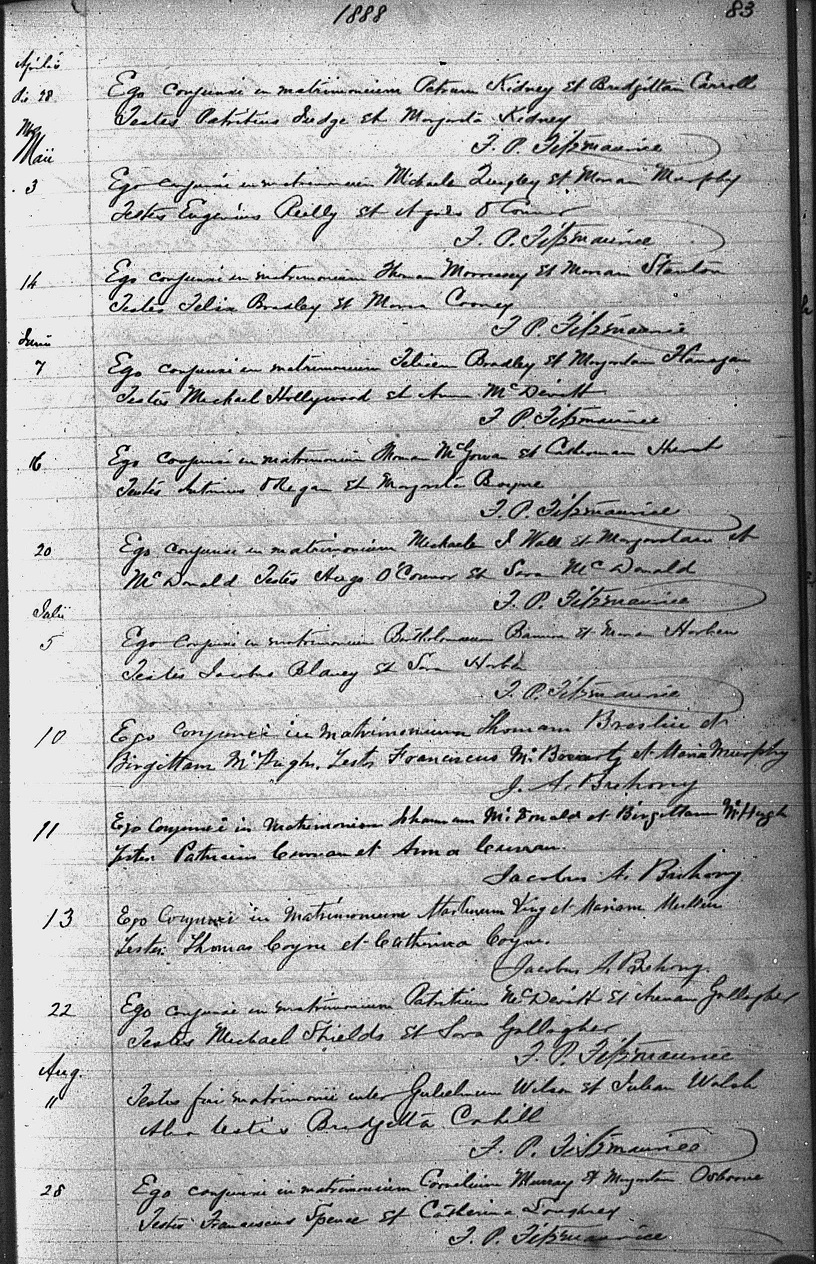 1888 83
Aprilis
Die 28 Ego conjunxi in matrimonium Petrum Kidney et Bridgittam Carroll
Testes Patritius Judge et Margarita Kidney
F. P. Fitzmaurice
Maii
3 Ego conjunxi in matrimonium Michaele et Mariam Murphy
Testes Eugenius Reilly et Agnes O'Connor
F. P. Fitzmaurice
14 Ego conjunxi in matrimonium Thomam Morrissey et Mariam Stanton
Testes Felix Bradley et Maria Cooney
F. P. Fitzmaurice
Junii
7 Ego conjunxi in matrimonium Felicem Bradley et Margaritam Flanagan
Testes Michael Hollywood et Anna McDevitt
F. P. Fitzmaurice
16 Ego conjunxi in matrimonium McGowan et Catherinam
Testes O'Regan et Margarita
F. P. Fitzmaurice
20 Ego conjunxi in matrimonium Michaele J. Wall et Margaritam et
McDonald Testes Hugo O'Connor et Sara McDonald
F. P. Fitzmaurice
Julii
5 Ego conjunxi in matrimonium Bartholomaeum et Mariam
Testes Jacobus Blaney et Sara
F. P. Fitzmaurice
10 Ego Conjunxi in Matrimonium Thomam Breslin et
Birgittam McHugh. Testes Franciscus et Maria Murphy
J. A. Brehony
11 Ego Conjunxi in Matrimonium Johannem McDonald et Birgittam McHugh
Testes Patricius Curran et Anna Curran.
Jacobus A. Brehony
13 Ego Conjunxi in Matrimonium Martinum King et Mariam Mullen
Testes: Thomas Coyne et Catherina Coyne.
Jacobus A. Brehony.
22 Ego conjunxi in matrimonium Patritium McDevitt et Annam Gallagher
Testes Michael Shields et Sara Gallagher
F. P. Fitzmaurice
Aug.
11 Testes fui matrimonii inter Gulielmum Wilson et Juliam Walsh
Alia testis Bridgetta Cahill
F. P. Fitzmaurice
28 Ego conjunxi in matrimonium Cornelium Murray et Margaritam Osborne
Testes Franciscus Spence et Catherina Loughrey
F. P. Fitzmaurice